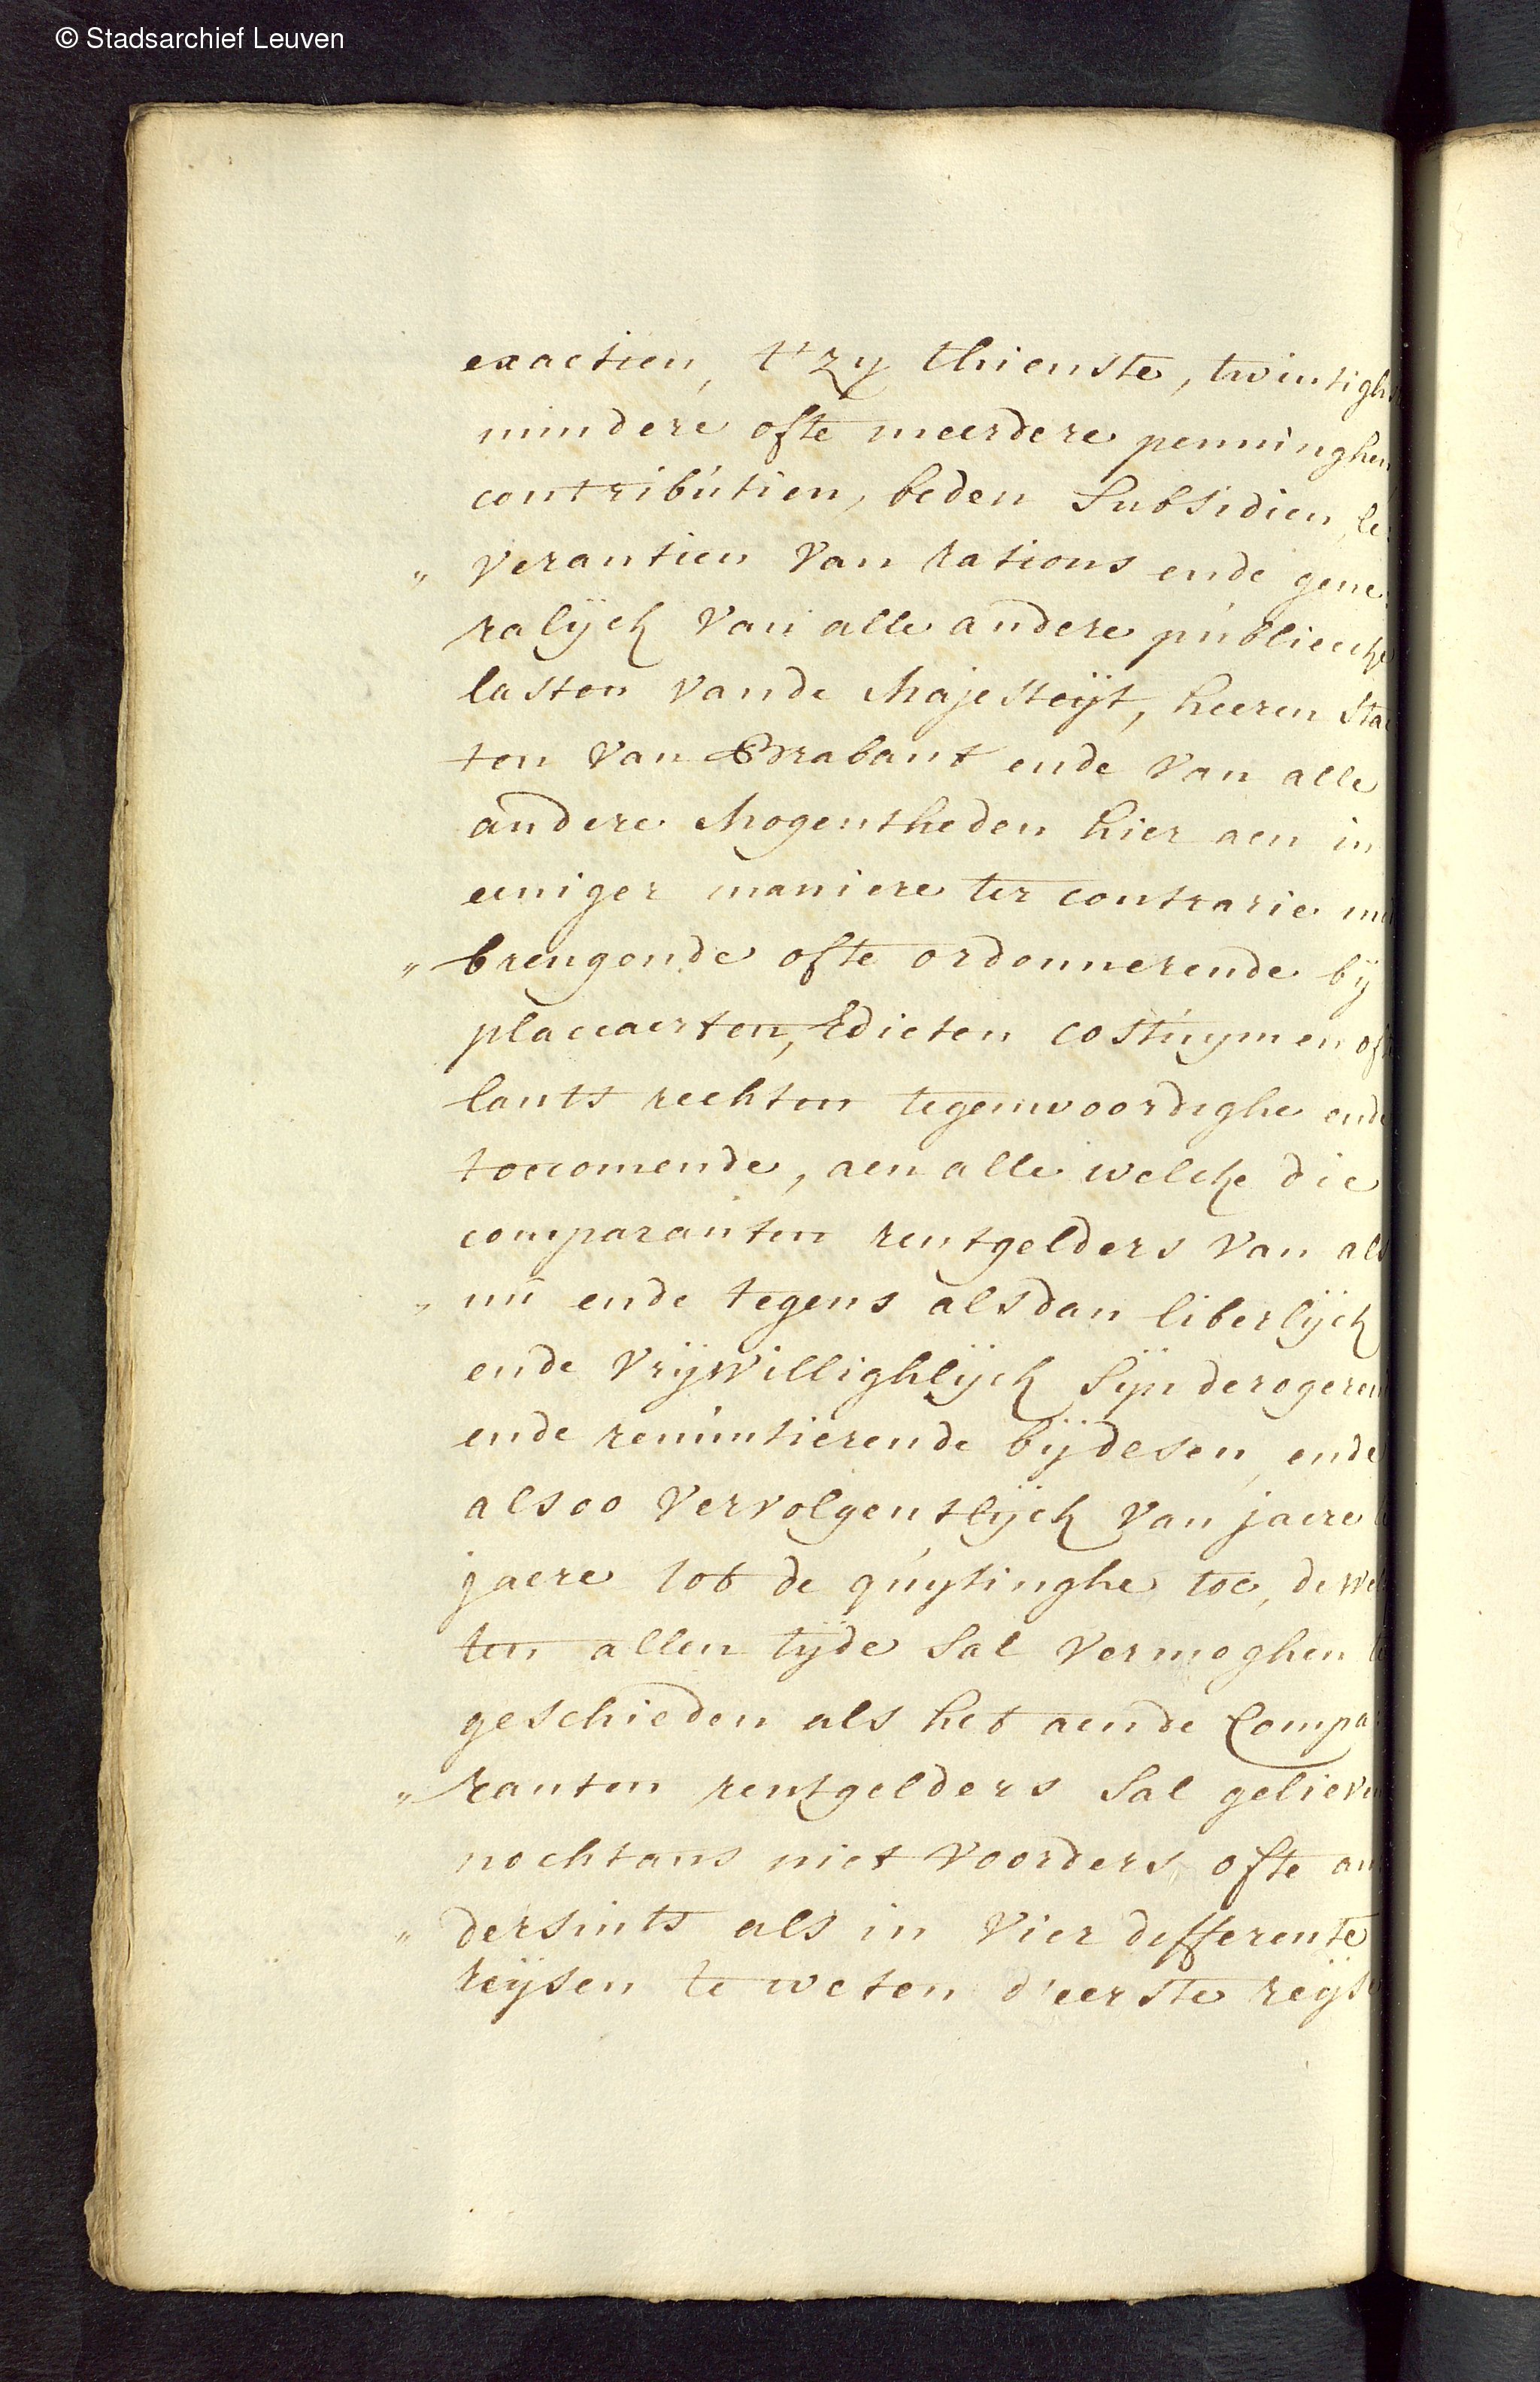 © Stadsarchief Leuven
exactien, t'zy thienste, twintighs
mindere ofte meerdere penninghen
contributien, beden Subsidien, le
„ verantien van rations ende gene
ralijck van alle andere publiecke
lasten vande Majesteijt, heeren Sta
ten van Brabant ende van alle
andere Mogentheden hier aen in
eeniger maniere ter contrarie
„ brengende ofte ordonnerende bij
placcaerten, Edicten costuymen oft
lants rechten tegenwoordighe ende
toecomende, aen alle welcke die
comparanten rentgelders van als
„ nu ende tegens alsdan liberlijck
ende vrijwillighlijck Sijn derogeren
ende renuntierende bij desen, ende
alsoo vervolgentlijck van jaere
jaere tot de quytinghe toe, de wel
ten allen tijde Sal vermoghen te
geschieden als het aende Compa
„ ranten rentgelders Sal gelieven
nochtans niet voorders ofte an
„ dersints als in vier defferente
reijsen te weten d'eerste reijse